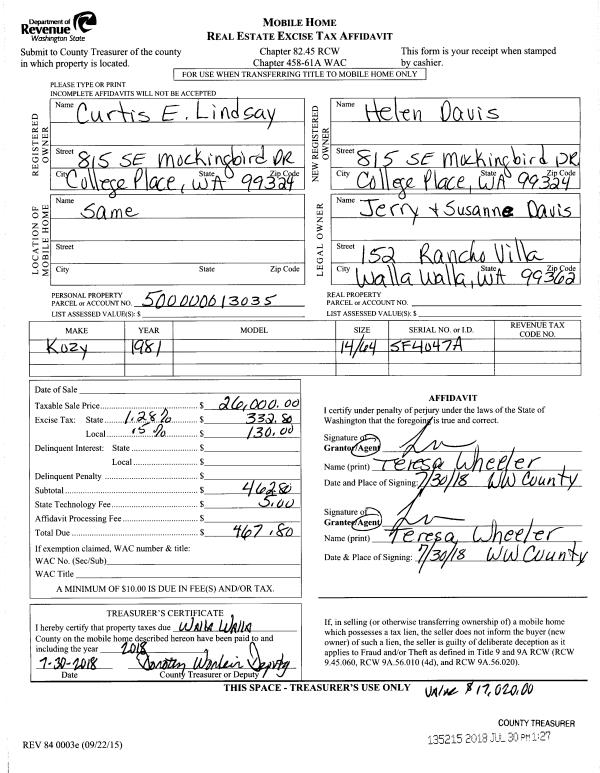 Department of
Revenue
Washington State
MOBILE HOME
REAL ESTATE EXCISE TAX AFFIDAVIT
Submit to County Treasurer of the county
in which property is located.
Chapter 82.45 RCW
Chapter 458-61A WAC
This form is your receipt when stamped
by cashier.
FOR USE WHEN TRANSFERRING TITLE TO MOBILE HOME ONLY
PLEASE TYPE OR PRINT
INCOMPLETE AFFIDAVITS WILL NOT BE ACCEPTED
REGISTERED
OWNER
Name Curtis E. Lindsay
Street 815 SE Mockingbird DR
City College Place, State WA Zip Code 99324
NEW REGISTERED
OWNER
Name Helen Davis
Street 815 SE Mockingbird DR
City College Place, State WA Zip Code 99324
LOCATION OF
MOBILE HOME
Name Same
Street
City State Zip Code
LEGAL OWNER
Name Jerry & Susanne Davis
Street 152 Rancho Villa
City Walla Walla, State WA Zip Code 99362
PERSONAL PROPERTY
PARCEL or ACCOUNT NO. 500000613035
LIST ASSESSED VALUE(S): $
REAL PROPERTY
PARCEL or ACCOUNT NO.
LIST ASSESSED VALUE(S): $
MAKE YEAR MODEL SIZE SERIAL NO. or I.D. REVENUE TAX
CODE NO.
Kozy 1981 14/64 SF4047A
Date of Sale
Taxable Sale Price $ 26,000.00
Excise Tax: State 1.28% $ 332.80
Local .5% $ 130.00
Delinquent Interest: State $
Local $
Delinquent Penalty $
Subtotal $ 462.80
State Technology Fee $ 5.00
Affidavit Processing Fee $
Total Due $ 467.80
If exemption claimed, WAC number & title:
WAC No. (Sec/Sub)
WAC Title
A MINIMUM OF $10.00 IS DUE IN FEE(S) AND/OR TAX.
AFFIDAVIT
I certify under penalty of perjury under the laws of the State of
Washington that the foregoing is true and correct.
Signature of
Grantor/Agent
Name (print) Teresa Wheeler
Date and Place of Signing: 7/30/18 WW County
Signature of
Grantee/Agent
Name (print) Teresa Wheeler
Date & Place of Signing: 7/30/18 WW County
TREASURER'S CERTIFICATE
I hereby certify that property taxes due Walla Walla
County on the mobile home described hereon have been paid to and
including the year 2018
7-30-2018 Deputy
Date County Treasurer or Deputy
If, in selling (or otherwise transferring ownership of) a mobile home
which possesses a tax lien, the seller does not inform the buyer (new
owner) of such a lien, the seller is guilty of deliberate deception as it
applies to Fraud and/or Theft as defined in Title 9 and 9A RCW (RCW
9.45.060, RCW 9A.56.010 (4d), and RCW 9A.56.020).
THIS SPACE - TREASURER'S USE ONLY Value $17,020.00
COUNTY TREASURER
135215 2018 JUL 30 PM 1:27
REV 84 0003e (09/22/15)